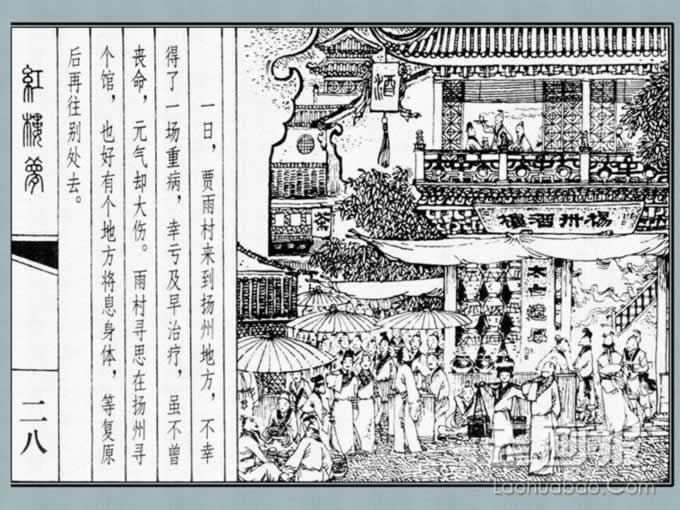 紅樓夢
二八
一日，贾雨村来到扬州地方，不幸
得了一场重病，幸亏及早治疗，虽不曾
丧命，元气却大伤。雨村寻思在扬州寻
个馆，也好有个地方将息身体，等复原
后再往别处去。
酒
茶
楊州酒樓
太白遺風
Laohuabao.Com